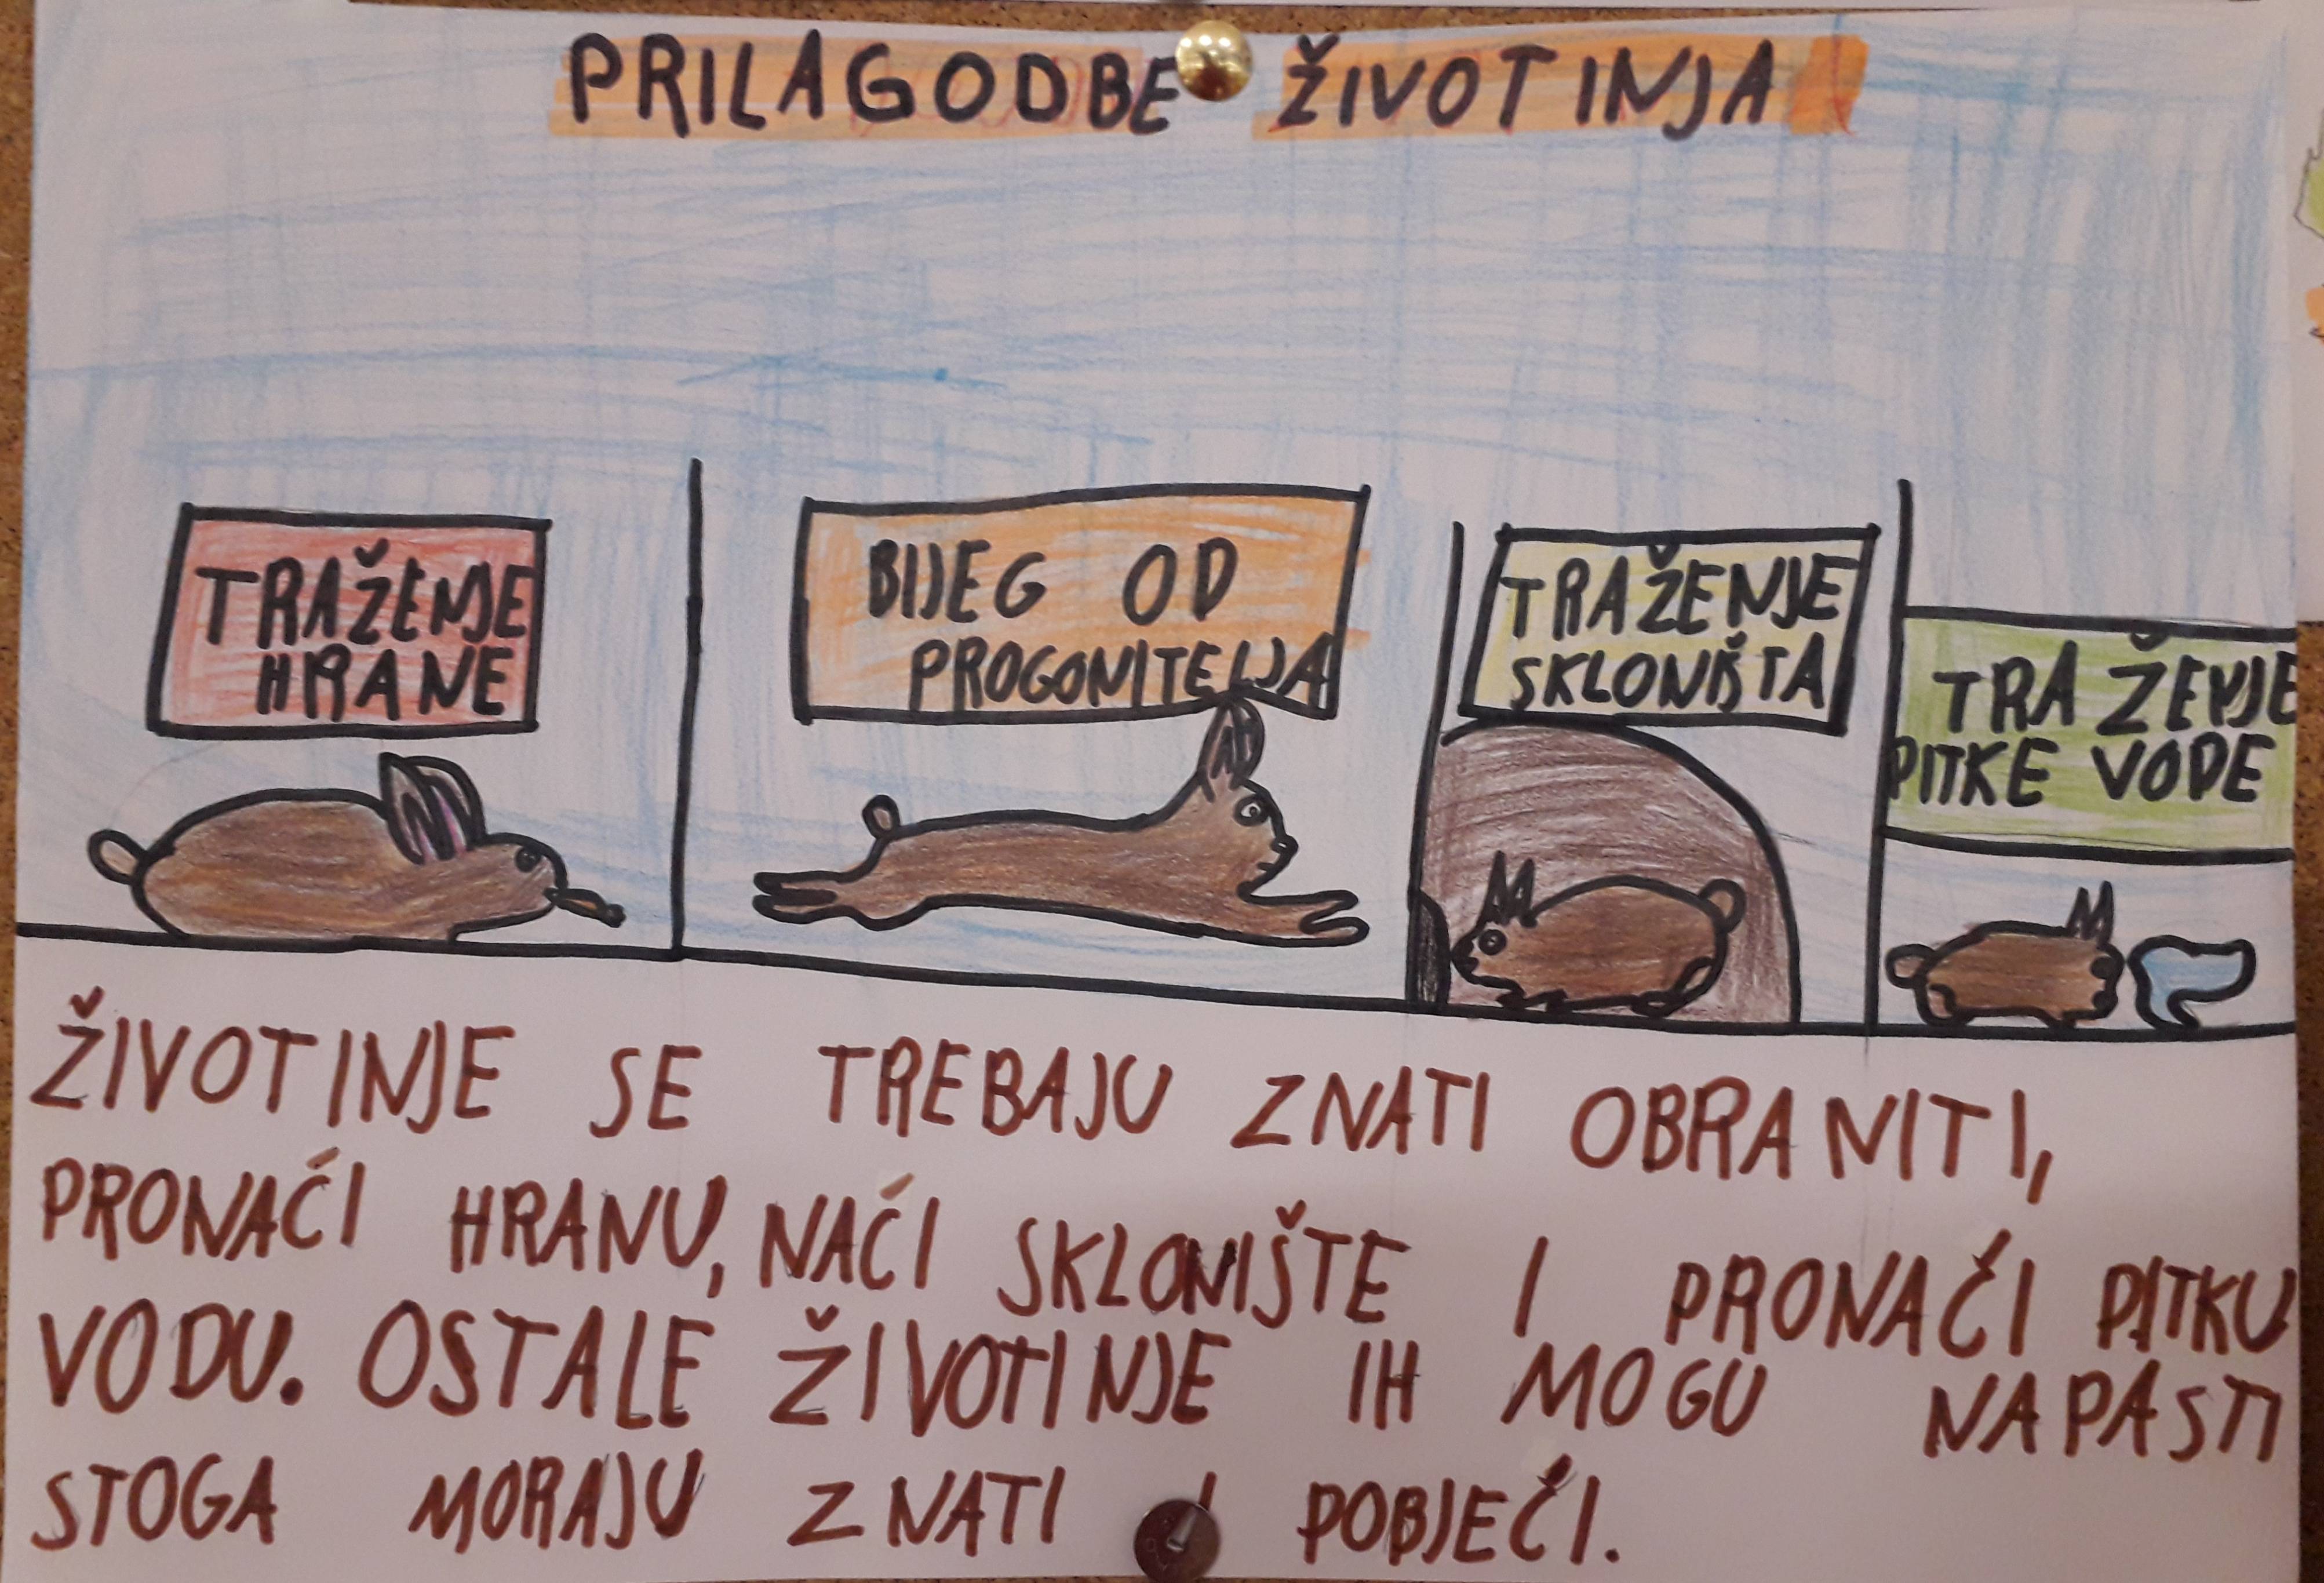 PRILAGODBE ŽIVOTINJA
TRAŽENJE
HRANE
BIJEG OD
PROGONITELJA
TRAŽENJE
SKLONIŠTA
TRAŽENJE
PITKE VODE
ŽIVOTINJE SE TREBAJU ZNATI OBRANITI,
PRONAĆI HRANU, NAĆI SKLONIŠTE I PRONAĆI PITKU
VODU. OSTALE ŽIVOTINJE IH MOGU NAPASTI
STOGA MORAJU ZNATI I POBJEĆI.